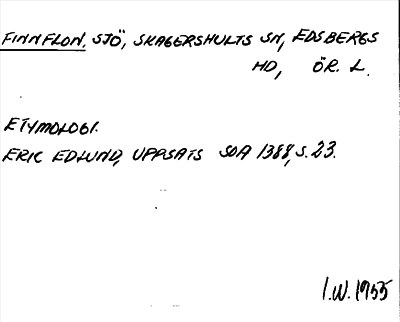 FINNFLON, SJÖ, SKAGERSHULTS SN, EDSBERGS
HD, ÖR. L.
ETYMOLOGI.
ERIC EDLUND, UPPSATS SOA 1388, S. 23.
I.W. 1955